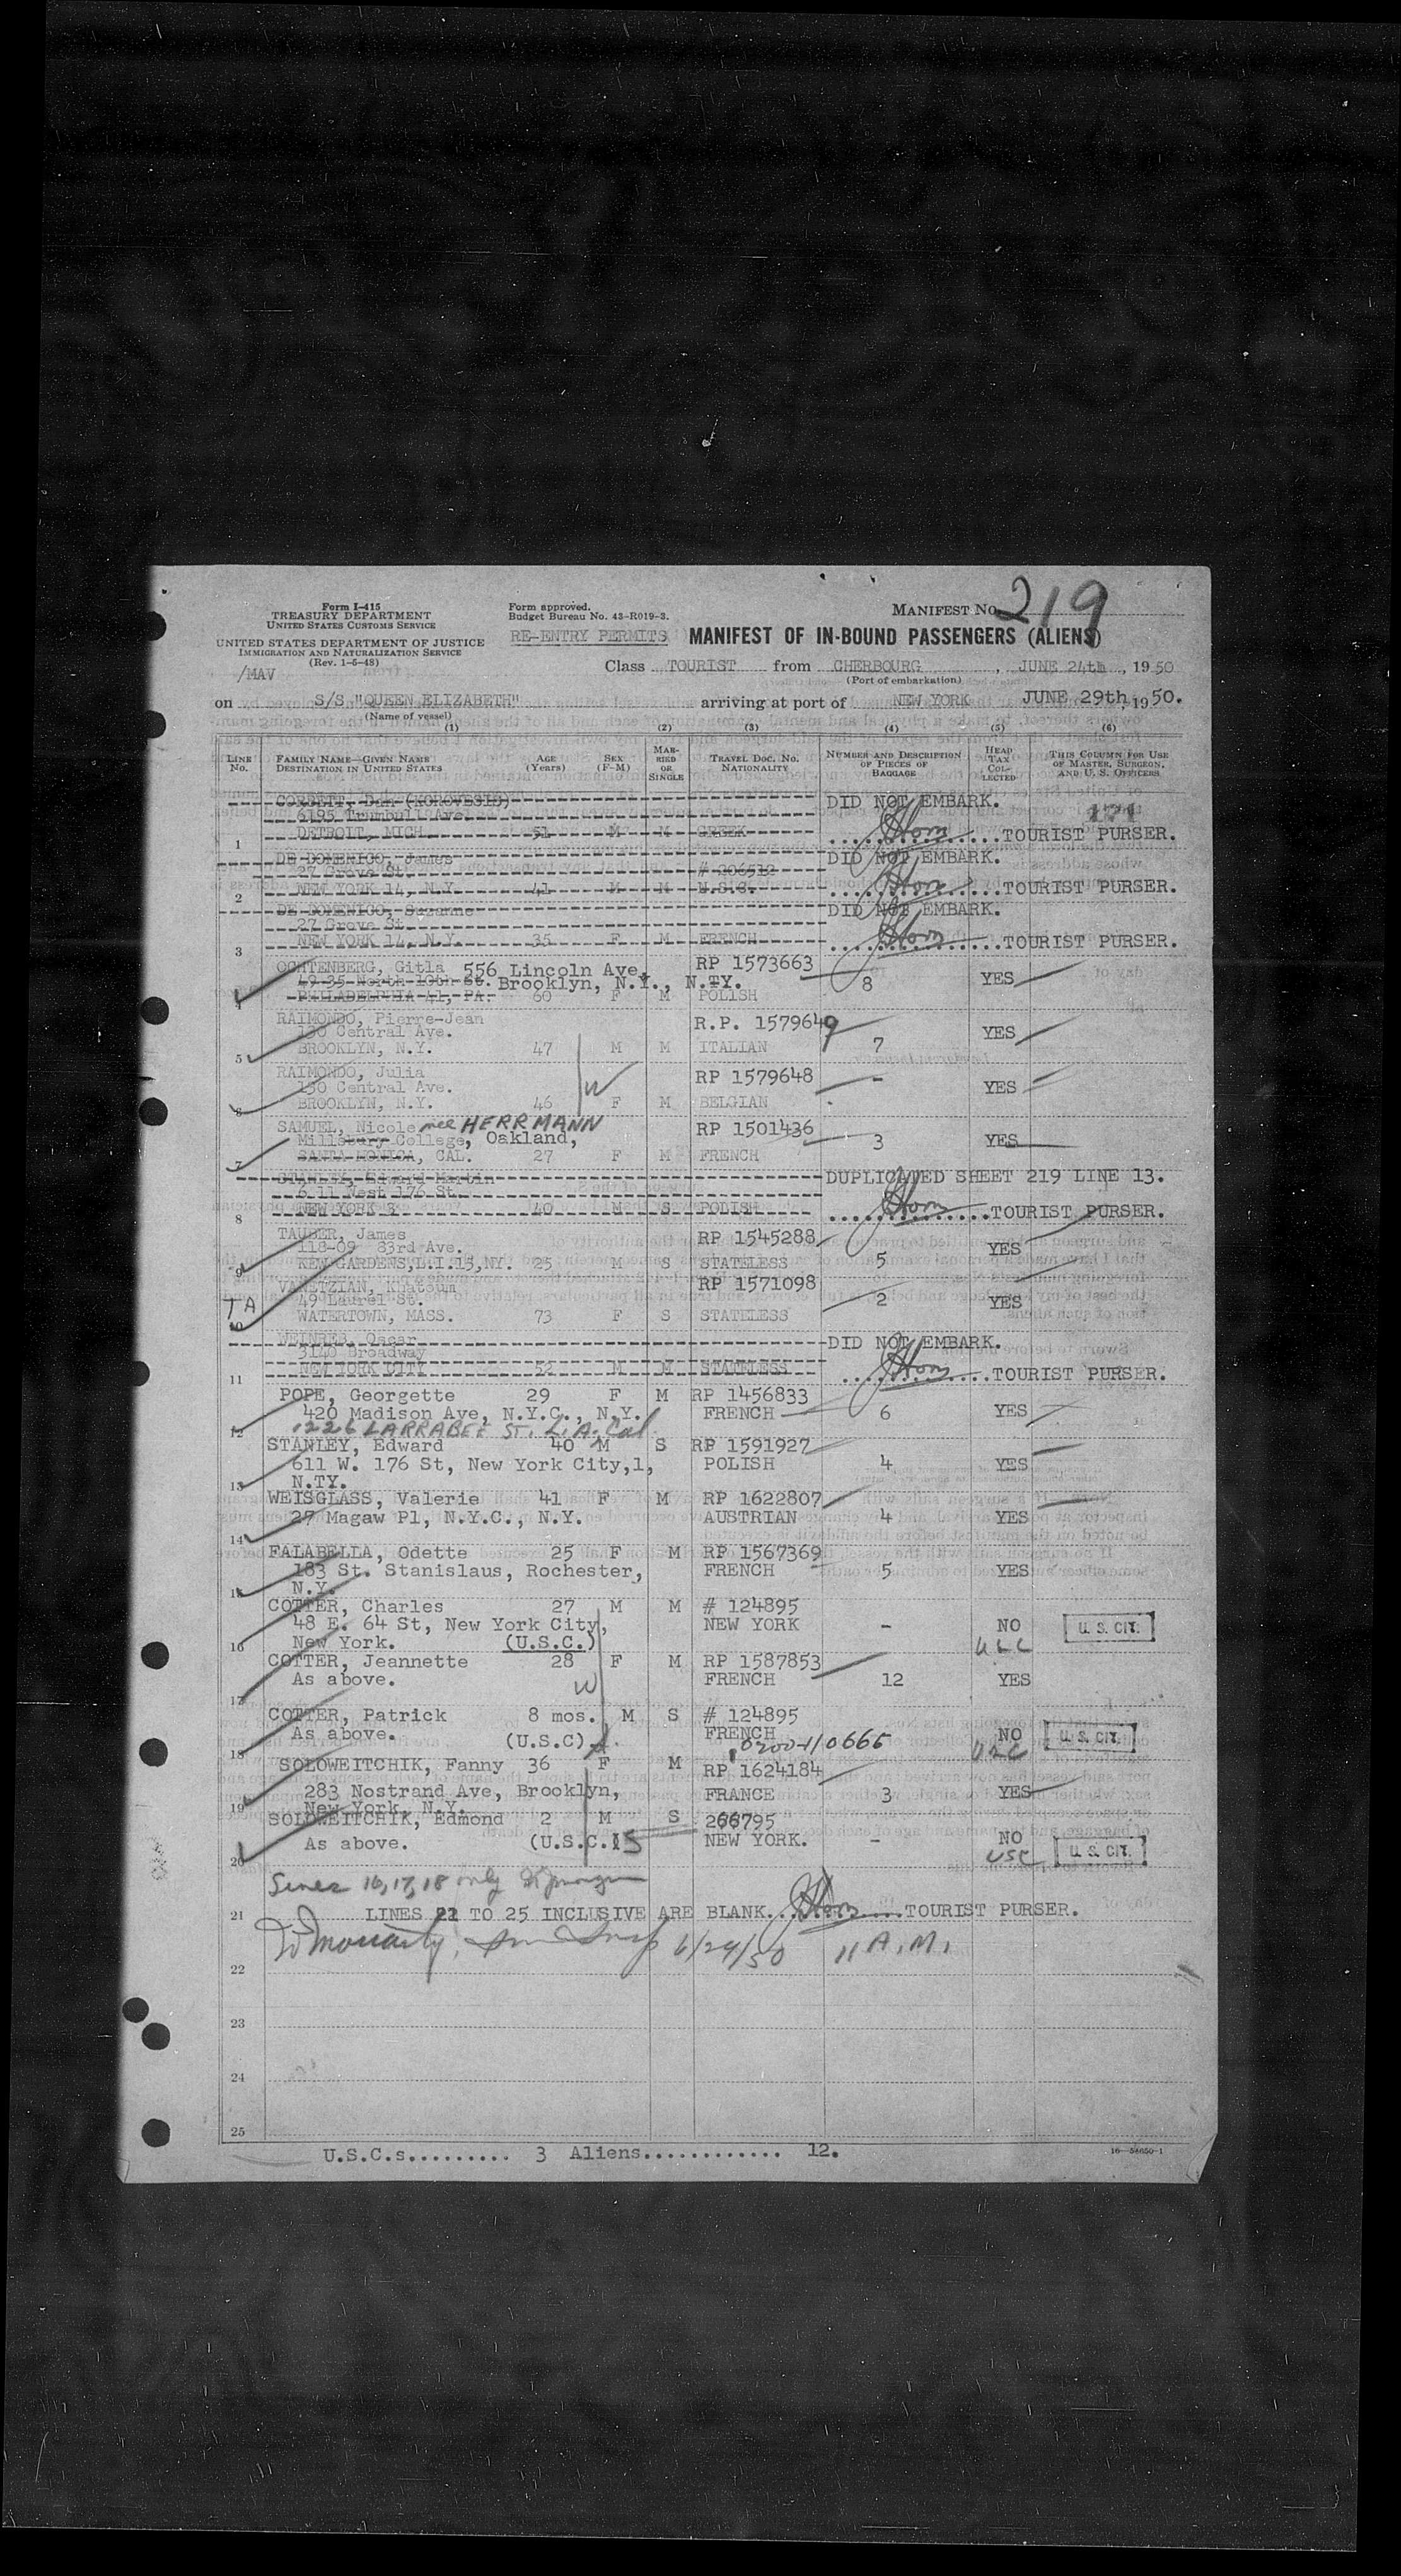 Form I-415
TREASURY DEPARTMENT
UNITED STATES CUSTOMS SERVICE
UNITED STATES DEPARTMENT OF JUSTICE
IMMIGRATION AND NATURALIZATION SERVICE
(Rev. 1-5-48)
/MAV
Form approved.
Budget Bureau No. 43-R019-3.
MANIFEST No. 219
RE-ENTRY PERMITS MANIFEST OF IN-BOUND PASSENGERS (ALIENS)
Class TOURIST from CHERBOURG, JUNE 24th, 1950
(Port of embarkation)
on S/S "QUEEN ELIZABETH" arriving at port of NEW YORK JUNE 29th, 1950.
(Name of vessel)
(1) (2) (3) (4) (5) (6)
LINE No. FAMILY NAME—GIVEN NAME DESTINATION IN UNITED STATES AGE (Years) SEX (F-M) MARRIED OR SINGLE TRAVEL DOC. No. NATIONALITY NUMBER AND DESCRIPTION OF PIECES OF BAGGAGE HEAD TAX COLLECTED THIS COLUMN FOR USE OF MASTER, SURGEON, AND U. S. OFFICERS
CORBETT, Dan (KOROVESIS) DID NOT EMBARK.
6195 Trumbull Ave. 171
1 DETROIT, MICH. 51 M M GREEK TOURIST PURSER.
DE DOMENICO, James DID NOT EMBARK.
27 Grove St. # 206512
2 NEW YORK 14, N.Y. 41 M M U.S.C. TOURIST PURSER.
DE DOMENICO, Suzanne DID NOT EMBARK.
27 Grove St.
3 NEW YORK 14, N.Y. 35 F M FRENCH TOURIST PURSER.
OCHTENBERG, Gitla 556 Lincoln Ave, RP 1573663
49-35 North 10th St. Brooklyn, N.Y., N.TY. 8 YES
4 PHILADELPHIA 41, PA. 60 F M POLISH
RAIMONDO, Pierre-Jean R.P. 1579649
130 Central Ave. YES
5 BROOKLYN, N.Y. 47 M M ITALIAN 7
RAIMONDO, Julia RP 1579648 -
130 Central Ave. YES
6 BROOKLYN, N.Y. 46 F M BELGIAN
W
SAMUEL, Nicole nee HERRMANN RP 1501436
Millsbury College, Oakland, 3 YES
7 SANTA MONICA, CAL. 27 F M FRENCH
STANLEY, Edward Martin DUPLICATED SHEET 219 LINE 13.
611 West 176 St.
8 NEW YORK 3 40 M S POLISH TOURIST PURSER.
TAUBER, James RP 1545288
118-09 83rd Ave. YES
9 KEW GARDENS, L.I.15, NY. 25 M S STATELESS 5
VANETZIAN, Khatoum RP 1571098
TA 49 Laurel St. 2 YES
10 WATERTOWN, MASS. 73 F S STATELESS
WEINREB, Oscar DID NOT EMBARK.
3140 Broadway
11 NEW YORK CITY 52 M M STATELESS TOURIST PURSER.
POPE, Georgette 29 F M RP 1456833
420 Madison Ave, N.Y.C., N.Y. FRENCH 6 YES
12 1226 LARRABEE ST. L.A. Cal
STANLEY, Edward 40 M S RP 1591927
611 W. 176 St, New York City,1, POLISH 4 YES
13 N.TY.
WEISGLASS, Valerie 41 F M RP 1622807
27 Magaw Pl, N.Y.C., N.Y. AUSTRIAN 4 YES
14
FALABELLA, Odette 25 F M RP 1567369
183 St. Stanislaus, Rochester, FRENCH 5 YES
15 N.Y.
COTTER, Charles 27 M M # 124895
48 E. 64 St, New York City, NEW YORK - NO U. S. CIT.
16 New York. (U.S.C.) USC
COTTER, Jeannette 28 F M RP 1587853
As above. FRENCH 12 YES
17 W
COTTER, Patrick 8 mos. M S # 124895
As above. (U.S.C) FRENCH NO U. S. CIT.
18 0200-110666 USC
SOLOWEITCHIK, Fanny 36 F M RP 1624184
283 Nostrand Ave, Brooklyn, FRANCE 3 YES
19 New York, N.Y.
SOLOWEITCHIK, Edmond 2 M S 266795
As above. (U.S.C.) NEW YORK. - NO U. S. CIT.
20 USC
Lines 16, 17, 18 only
21 LINES 21 TO 25 INCLUSIVE ARE BLANK. TOURIST PURSER.
Moriarty 6/29/50 11 A.M.
22
23
24
25
U.S.C.s......... 3 Aliens............ 12.
16—58650-1